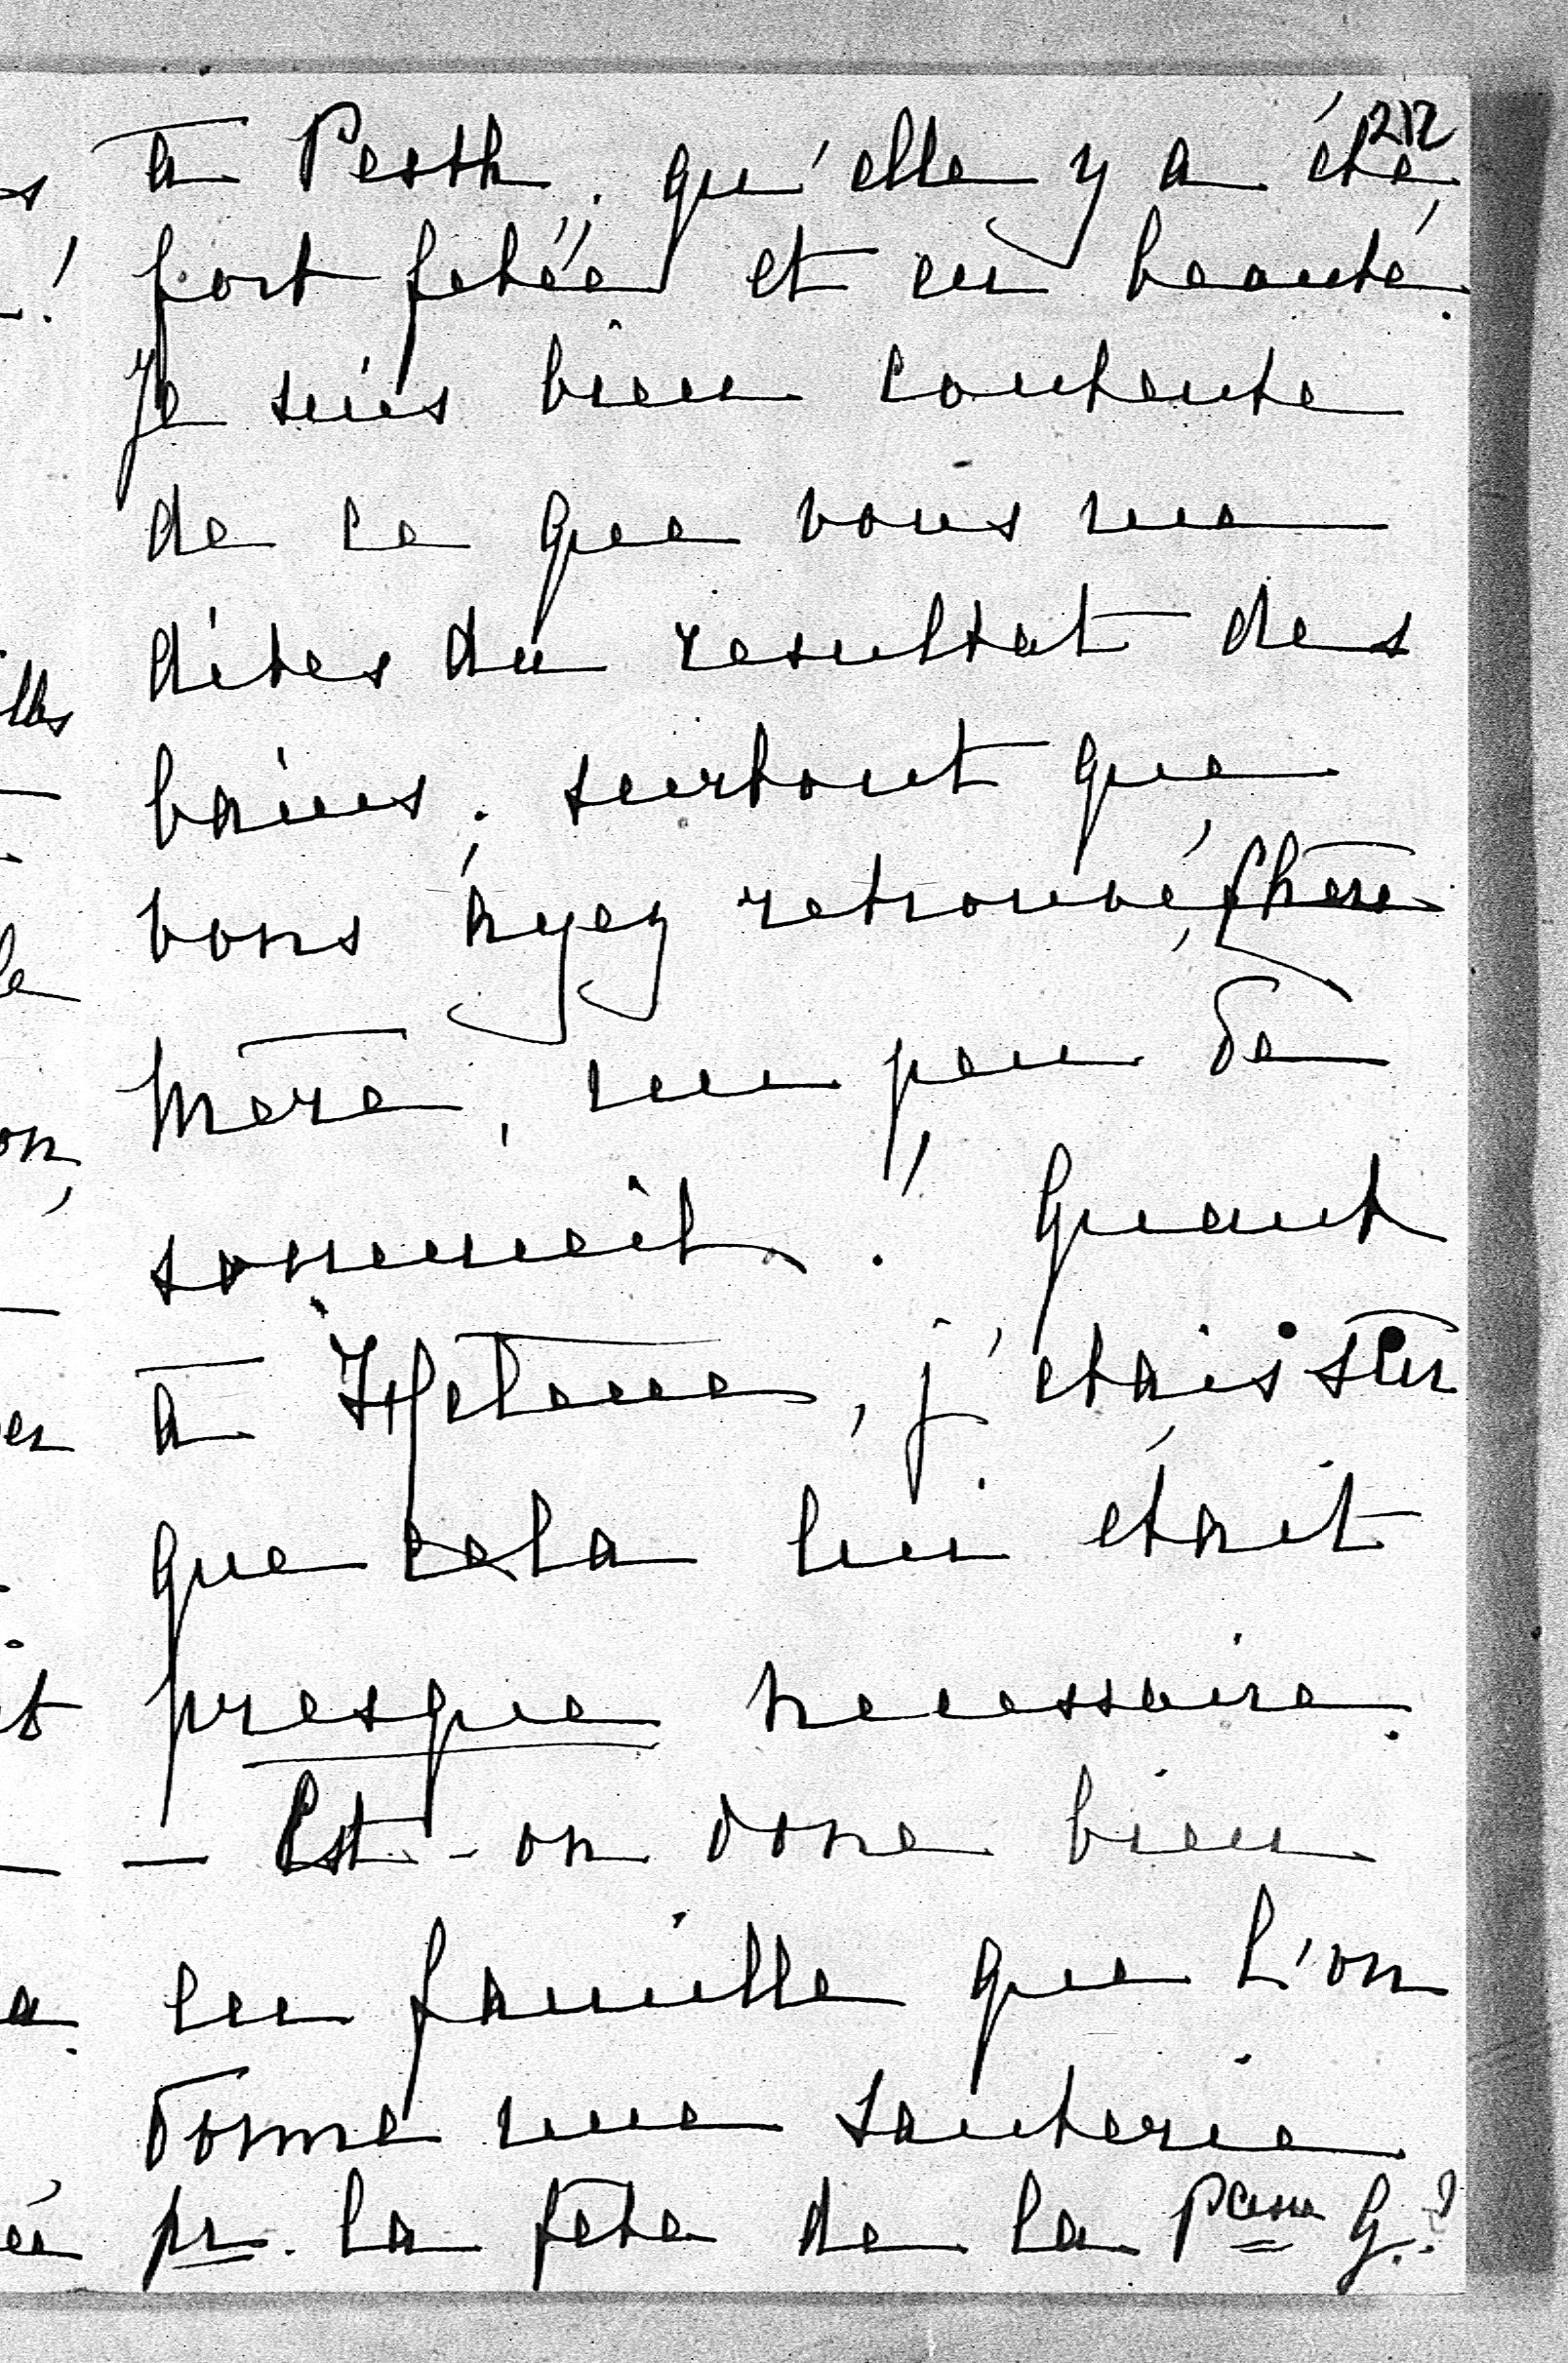 212
à Pesth. qu'elle y a été
fort fetée et en beauté.
Je suis bien contente
de ce que vous me
dites du resultat des
bains. surtout que
vous ayez retrouvé, Chère
Mère, un peu de
sommeil! Quant
à Hélène, j'étais sûr
que cela lui était
presque necessaire.
— Est-on donc bien
en famille que l'on
donne une sauterie
pr. la fête de la Pcesse G.?